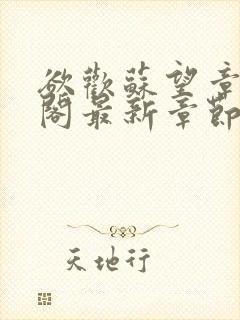 欲歡蘇望章
閣最新章節
天地行